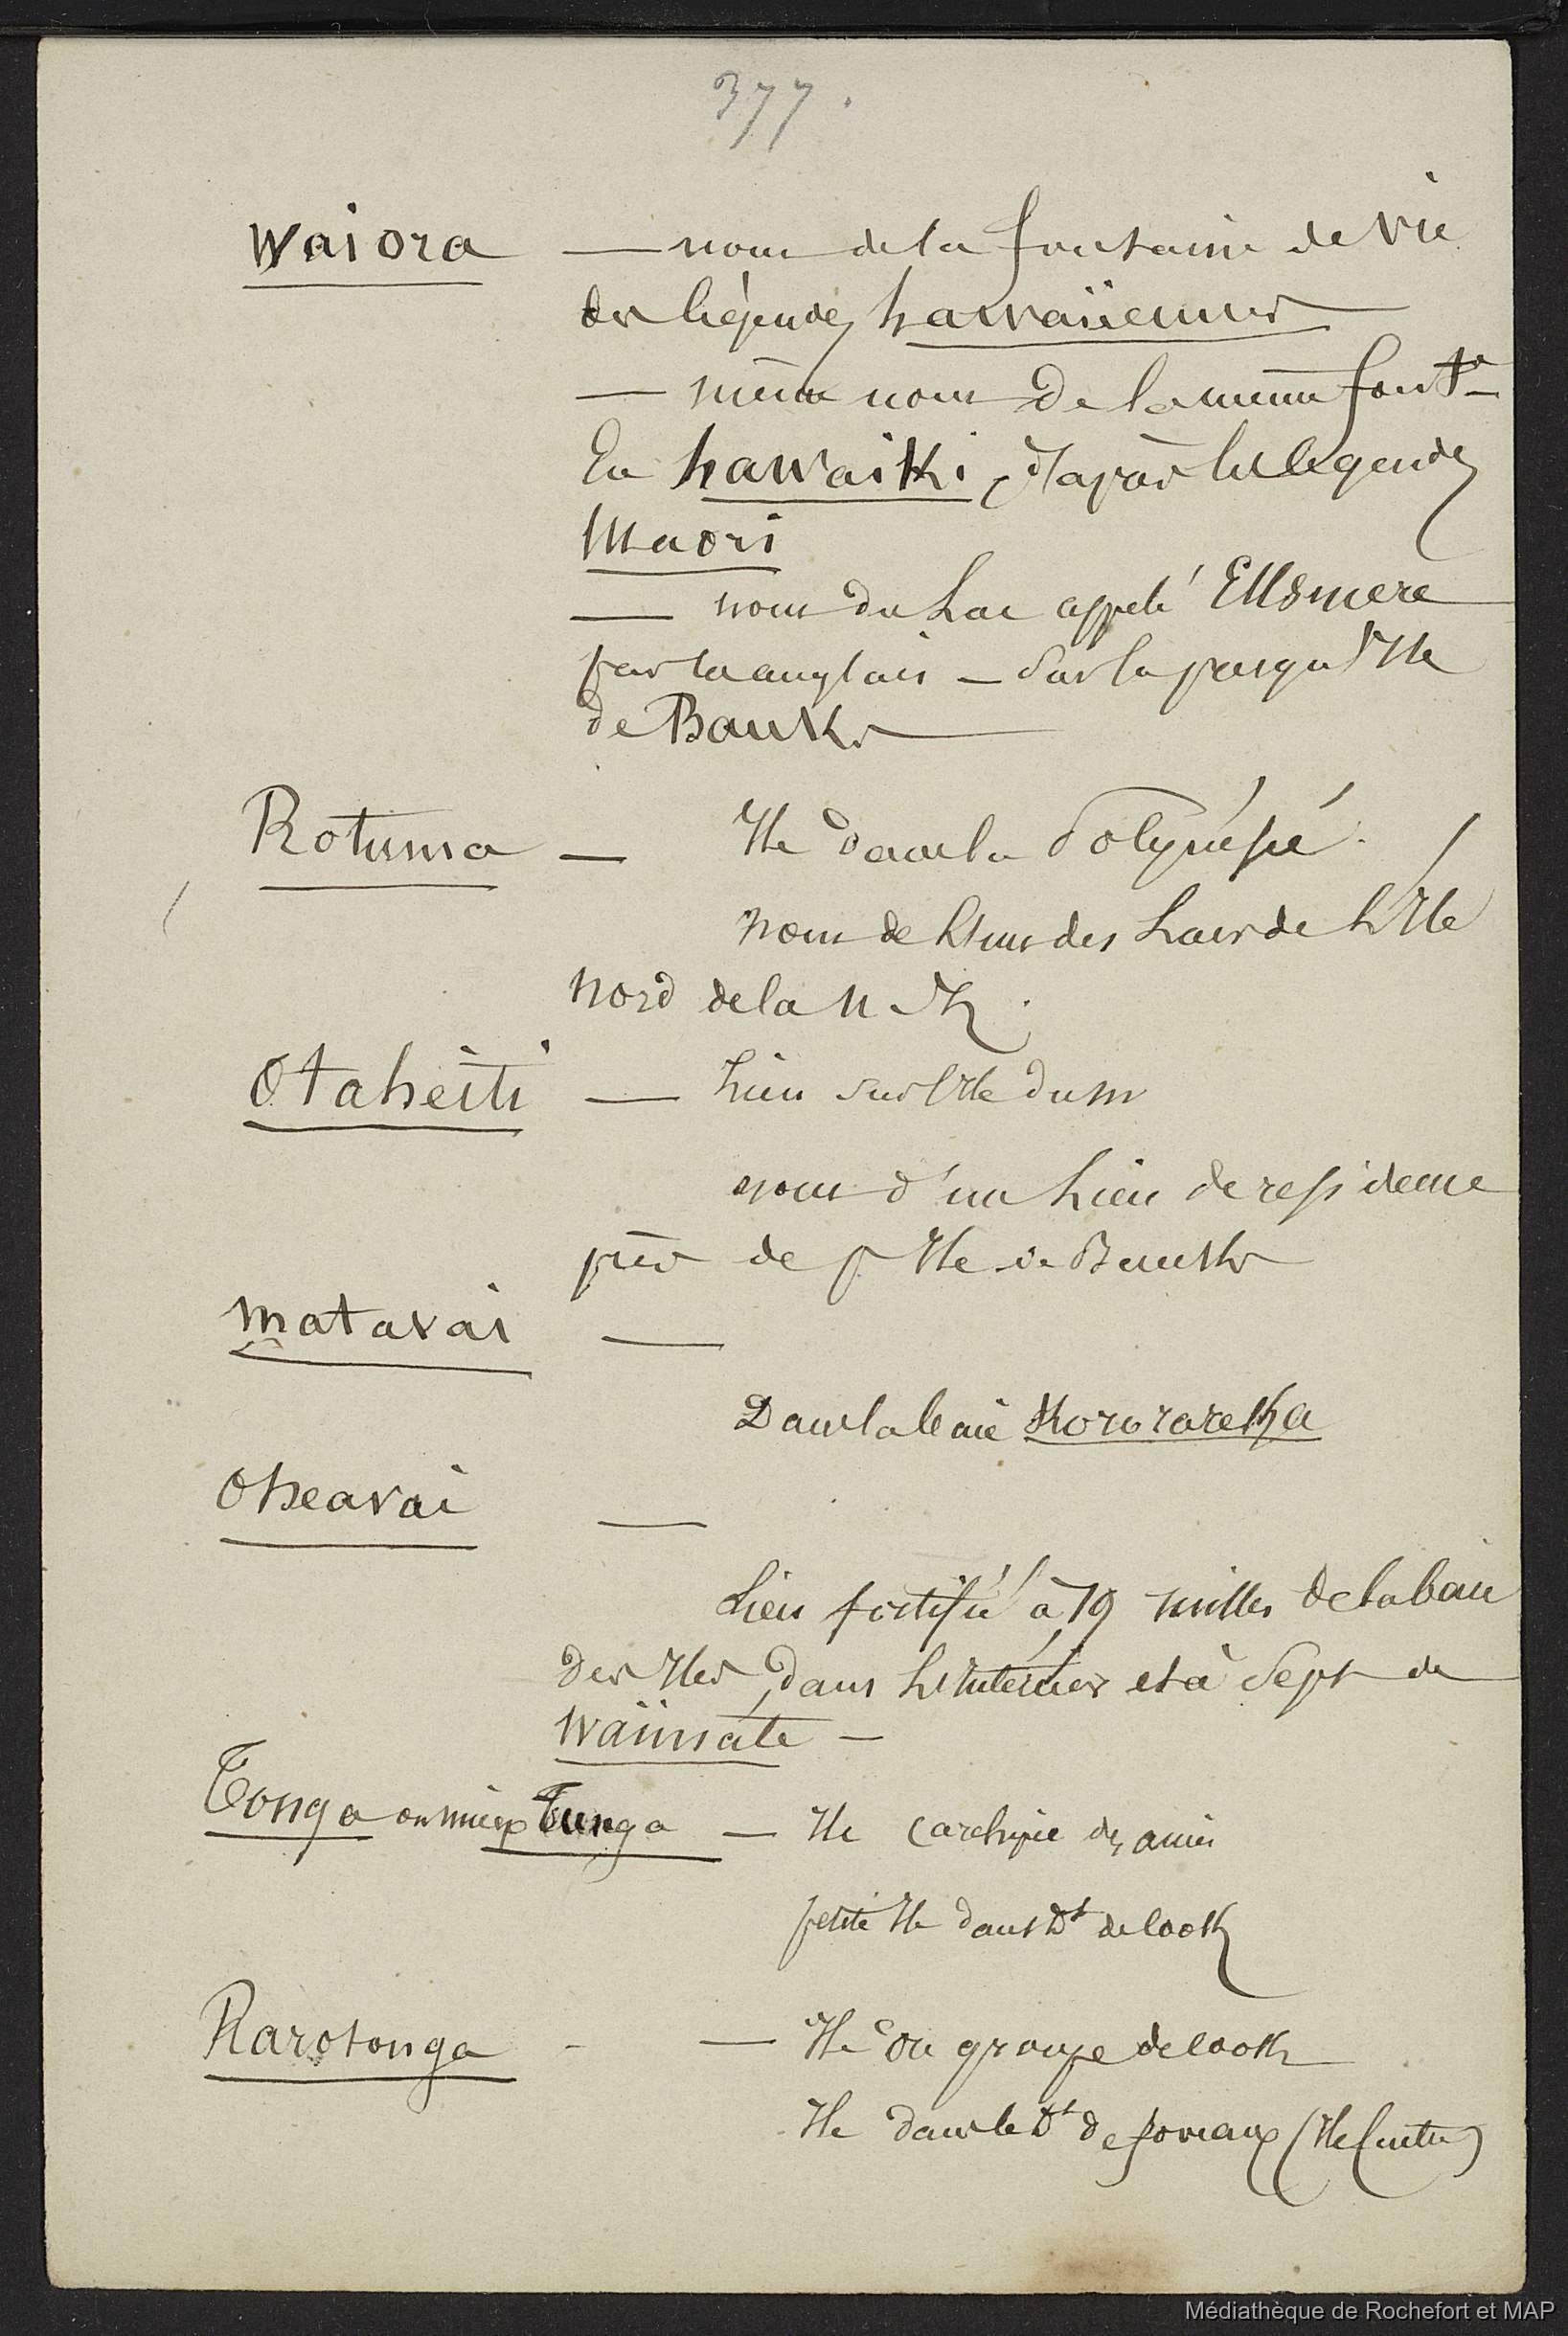 377.
Waiora — nom de la fontaine de vie
des légendes hawaiiennes —
— même nom de la même font.e —
En hawaiki, d'après les légendes
Maori
— nom du Lac appelé Ellsmere
par les anglais — sur la presqu'Ile
de Banks —
Rotuma — Ile dans la Polynésie.
nom de l'un des Lacs de l'Ile
nord de la N. Z.
Otaheiti — Lieu sur l'Ile du m
nom d'un Lieu de residence
près de p Ile de Banks
matavai —
Dans la baie Kororareka
Oheavai
—
Lieu fortifié à 19 milles de la baie
des Iles, dans l'intérieur et à Sept de
Waïmate —
Tonga ou mieux Tunga — Ile (archipie des amis
petite Ile dans Dt de Cook
Rarotonga - — Ile du groupe de Cook
Ile dans le Dt de foveaux (Ile Centre)
Médiathèque de Rochefort et MAP